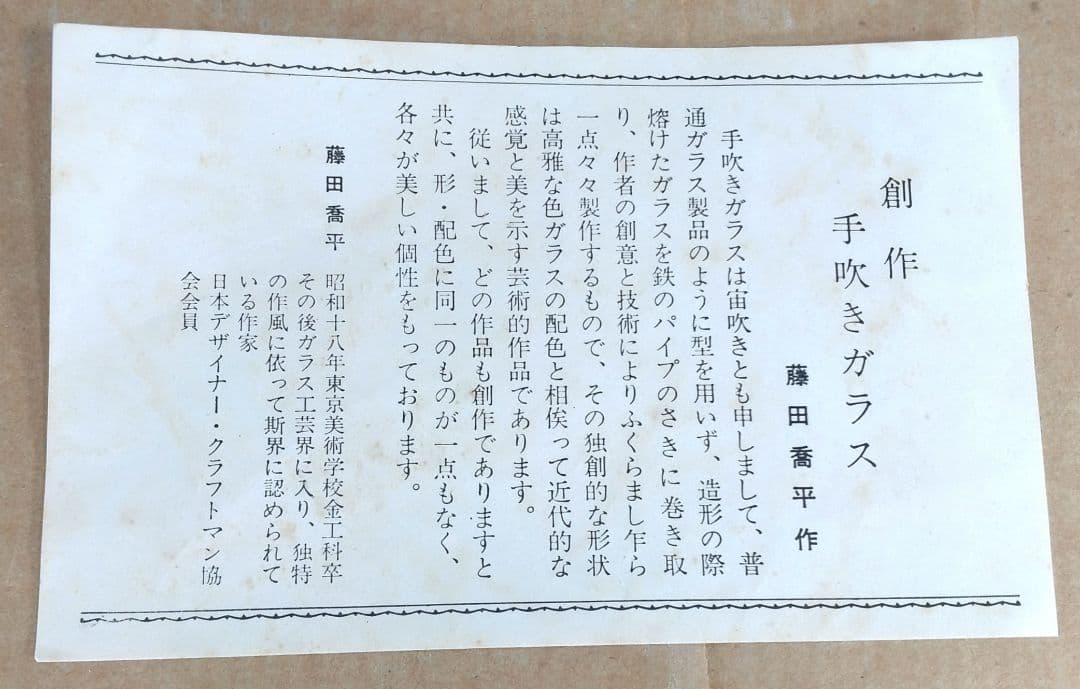 創作
手吹きガラス
藤田喬平作
手吹きガラスは宙吹きとも申しまして、普
通ガラス製品のように型を用いず、造形の際
熔けたガラスを鉄のパイプのさきに巻き取
り、作者の創意と技術によりふくらまし乍ら
一点々々製作するもので、その独創的な形状
は高雅な色ガラスの配色と相俟って近代的な
感覚と美を示す芸術的作品であります。
従いまして、どの作品も創作でありますと
共に、形・配色に同一のものが一点もなく、
各々が美しい個性をもっております。
藤田喬平
昭和十八年東京美術学校金工科卒
その後ガラス工芸界に入り、独特
の作風に依って斯界に認められて
いる作家
日本デザイナー・クラフトマン協
会会員